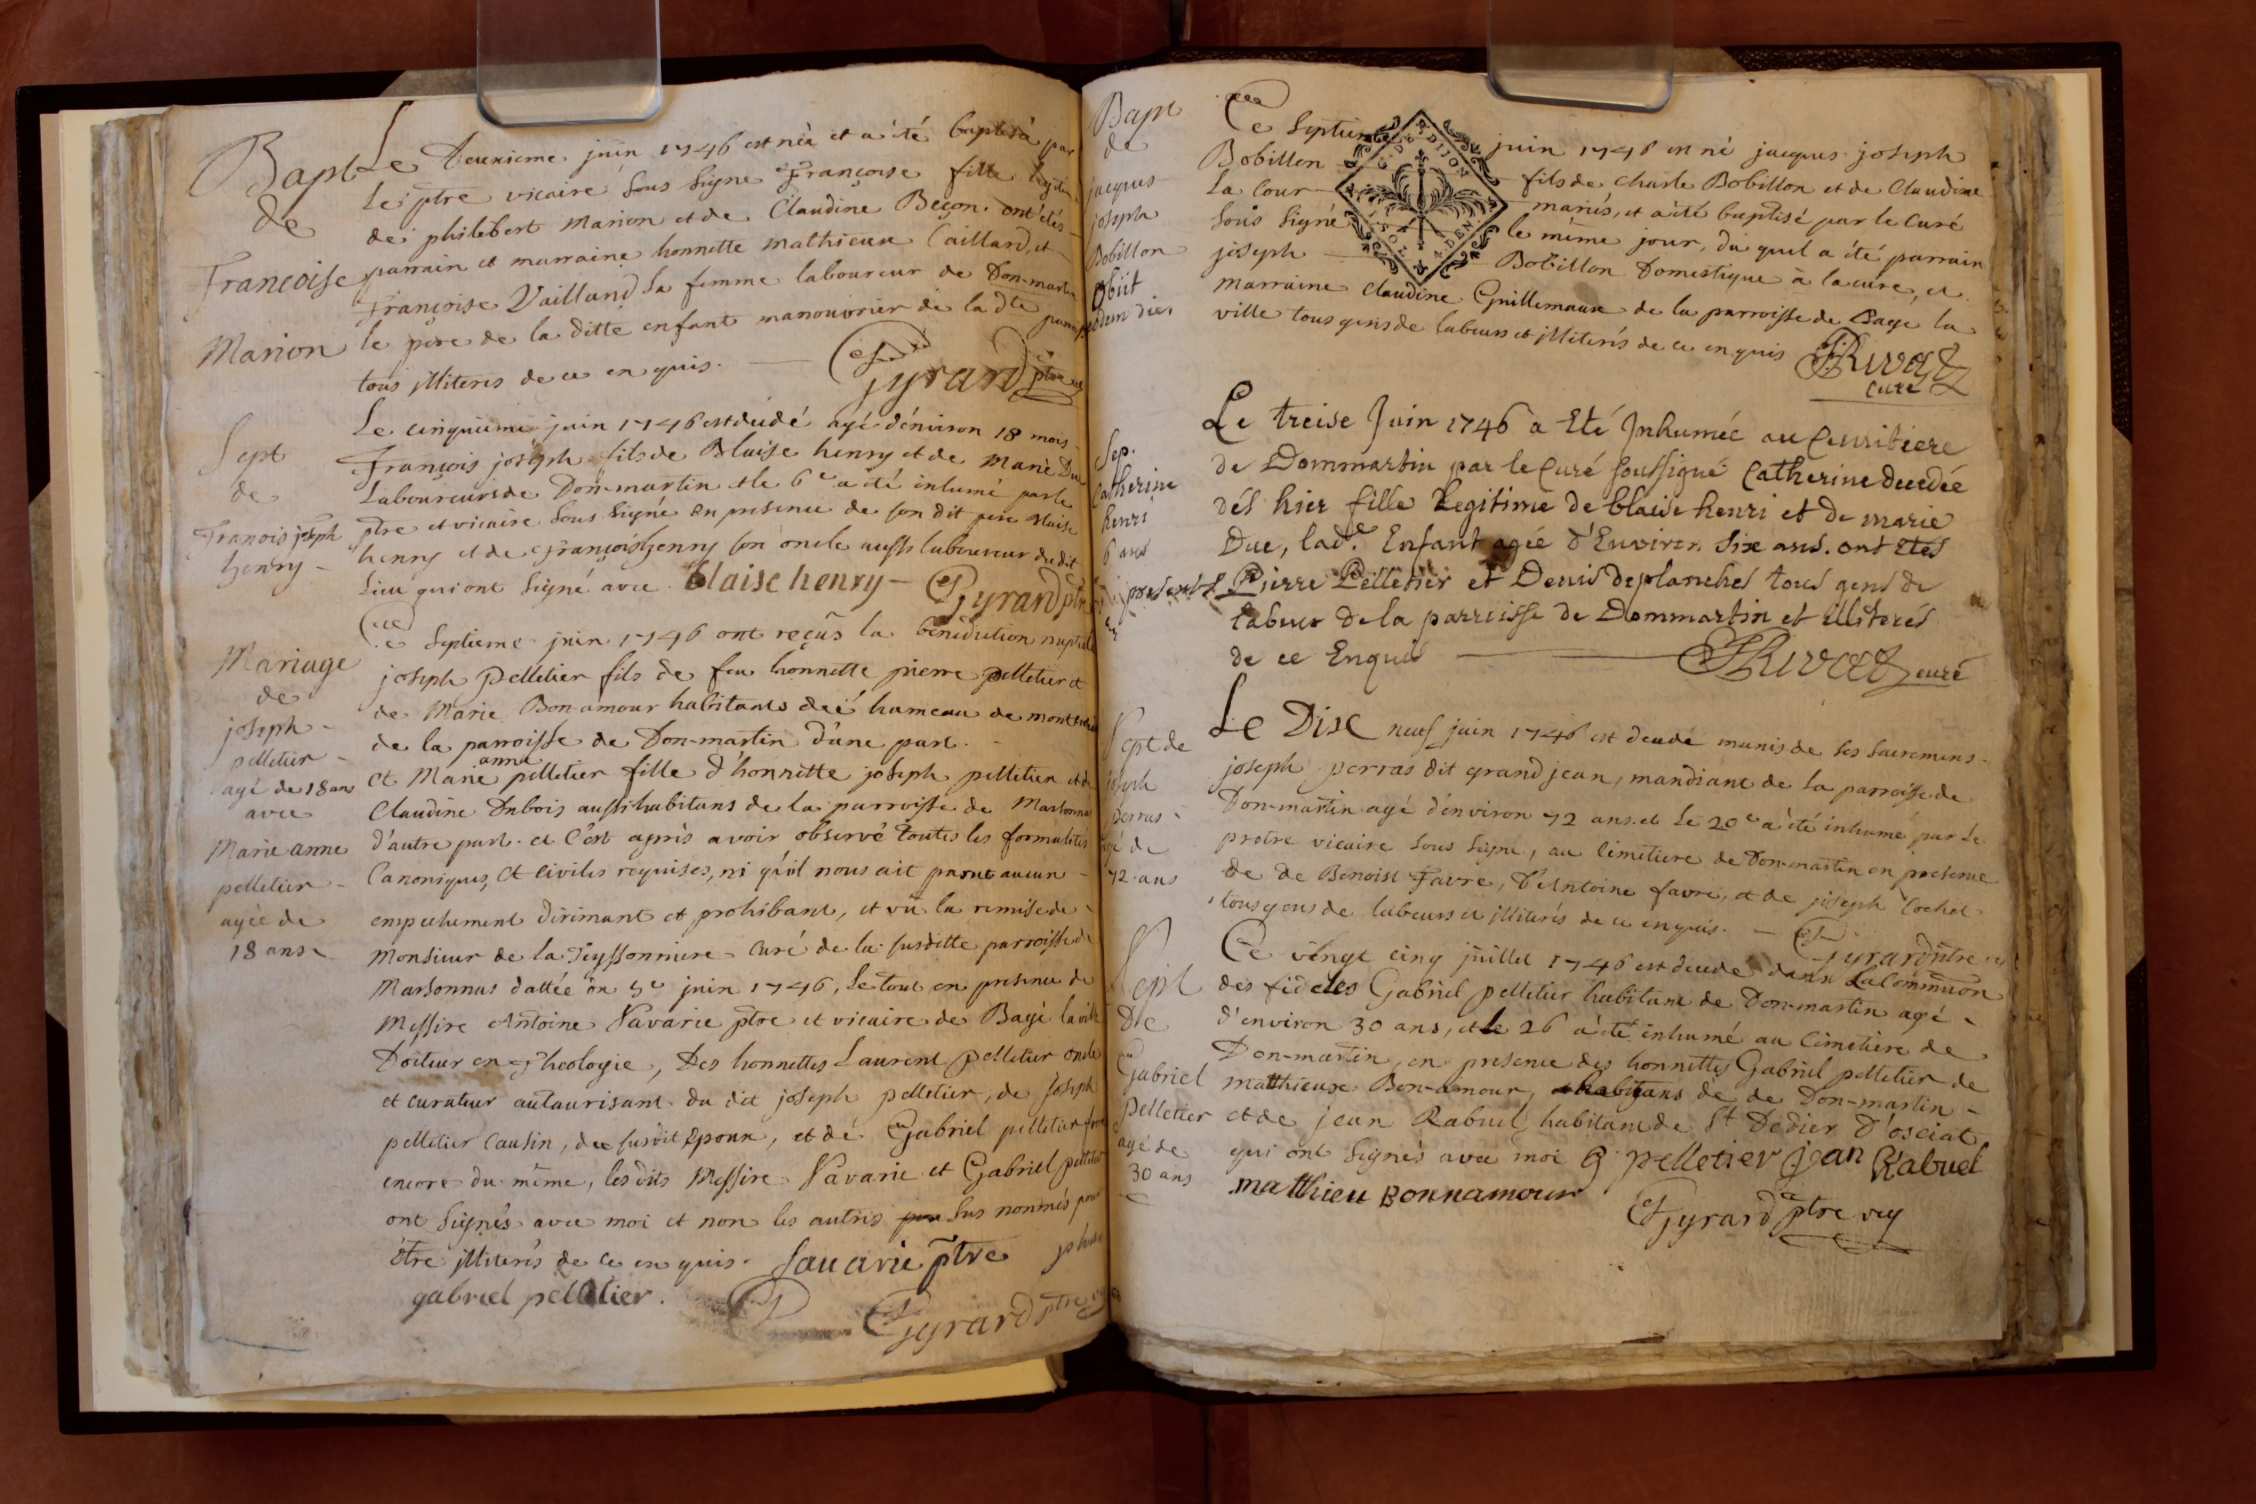 Bapt
de
Francoise
Marion
Le deuxieme juin 1746 est née et a été baptisée par
le ptre vicaire sous signé Françoise fille
de philibert Marion et de Claudine Beçon. ont étés
parrain et marraine honnette Mathieux Caillard, et
Françoise Vailland sa femme laboureur de Don-martin
le pere de la ditte enfant manouvrier de la dte
tous illiterés de ce enquis.
Gyrard ptre
Sept
de
Franois joseph
henry
Le cinquieme juin 1746 est décédé agé d'environ 18 mois
François joseph fils de Blaise henry et de Marie Duc
Laboureurs de Don-martin et le 6e a été inhumé par le
ptre et vicaire sous signé en presence de son dit pere Blaise
henry et de François henry son oncle aussi laboureur du dit
lieu qui ont signé avec blaise henry Gyrard ptre
Mariage
de
joseph
pelletier
agé de 18 ans
avec
Marie anne
pelletier
agée de
18 ans
Ce septieme juin 1746 ont reçus la bénédiction nuptiale
joseph pelletier fils de feu honnette pierre pelletier et
de Marie Bon-amour habitants hameau de
de la parroisse de Don-martin d'une part.
et Marie anne pelletier fille d'honnette joseph pelletier et de
Claudine Dubois aussi habitans de la parroisse de Marsonnas
d'autre part. et c'est aprés avoir observé toutes les formalités
Canoniques, et civiles requises, ni qu'il nous ait parut aucun
empechement dirimant et prohibant, et vu la remise de
Monsieur de la Teyssonniere curé de la susditte parroisse de
Marsonnas dattée du 5e juin 1746, le tout en presence de
Messire Antoine Savarie ptre et vicaire de Bagé la ville
Docteur en Theologie, Des honnettes Laurent pelletier oncle
et curateur autaurisant du dit joseph pelletier, de joseph
pelletier causin, du susdit Epoux, et de Gabriel pelletier frere
encore du même, les dits Messire Savarie et Gabriel pelletier
ont signés avec moi et non les autres sus nommés pour
être illiterés de ce enquis. Sauarie ptre
gabriel pelletier.
Gyrard ptre
Bapt
de
jacques
joseph
Bobillon
obiit
eodem die
Ce septieme juin 1746 est né jacques joseph
Bobillon fils de Charle Bobillon et de Claudine
La Cour mariés, et a été baptisé par le Curé
sous signé le même jour, du quel a été parrain
joseph Bobillon Domestique a la cure, et
marraine Claudine Guillemaux de la parroisse de Bage la
ville tous gens de labeurs et illiterés de ce enquis
G. DE DIJON
Rivat
curé
Sep.
Catherine
henri
6 ans
Le treise Juin 1746 a Eté Inhumée au Cemitiere
de Dommartin par le Curé soussigné Catherine decedée
dés hier fille Legitime de blaise henri et de marie
Duc, lade. Enfant agée d'Environ Six ans. ont Etés
presents Pierre Pelletier et Denis Deplanches tous gens de
labeur de la parroisse de Dommartin et illiterés
de ce Enquis
Rivat curé
Sept de
joseph
perras
agé de
72 ans
Le Dix neuf juin 1746 est decedé munis de ses sacremens
joseph perras dit grand jean, mandiant de la parroisse de
Don-martin agé d'environ 72 ans et le 20e a été inhumé par le
pretre vicaire sous signé, au cimetiere de Don-martin en presence
de de Benoist Favre, d'Antoine favre, et de joseph Cochet
tous gens de labeurs et illiterés de ce enquis.
Gyrard ptre
Sept
De
Gabriel
pelletier
agé de
30 ans
Ce vingt cinq juillet 1746 est decedé dans La Commuon
des fideles Gabriel pelletier habitant de Don-martin agé
d'environ 30 ans, et le 26 a été inhumé au cimetiere de
Don-martin, en presence des honnettes Gabriel pelletier de
matthieux Bon-amour, habitans de de Don-martin
et de jean Rabuel habitant de St Dedier D'osciat
qui ont signés avec moi G pelletier jean Rabuel
matthieu Bonnamour
Gyrard ptre